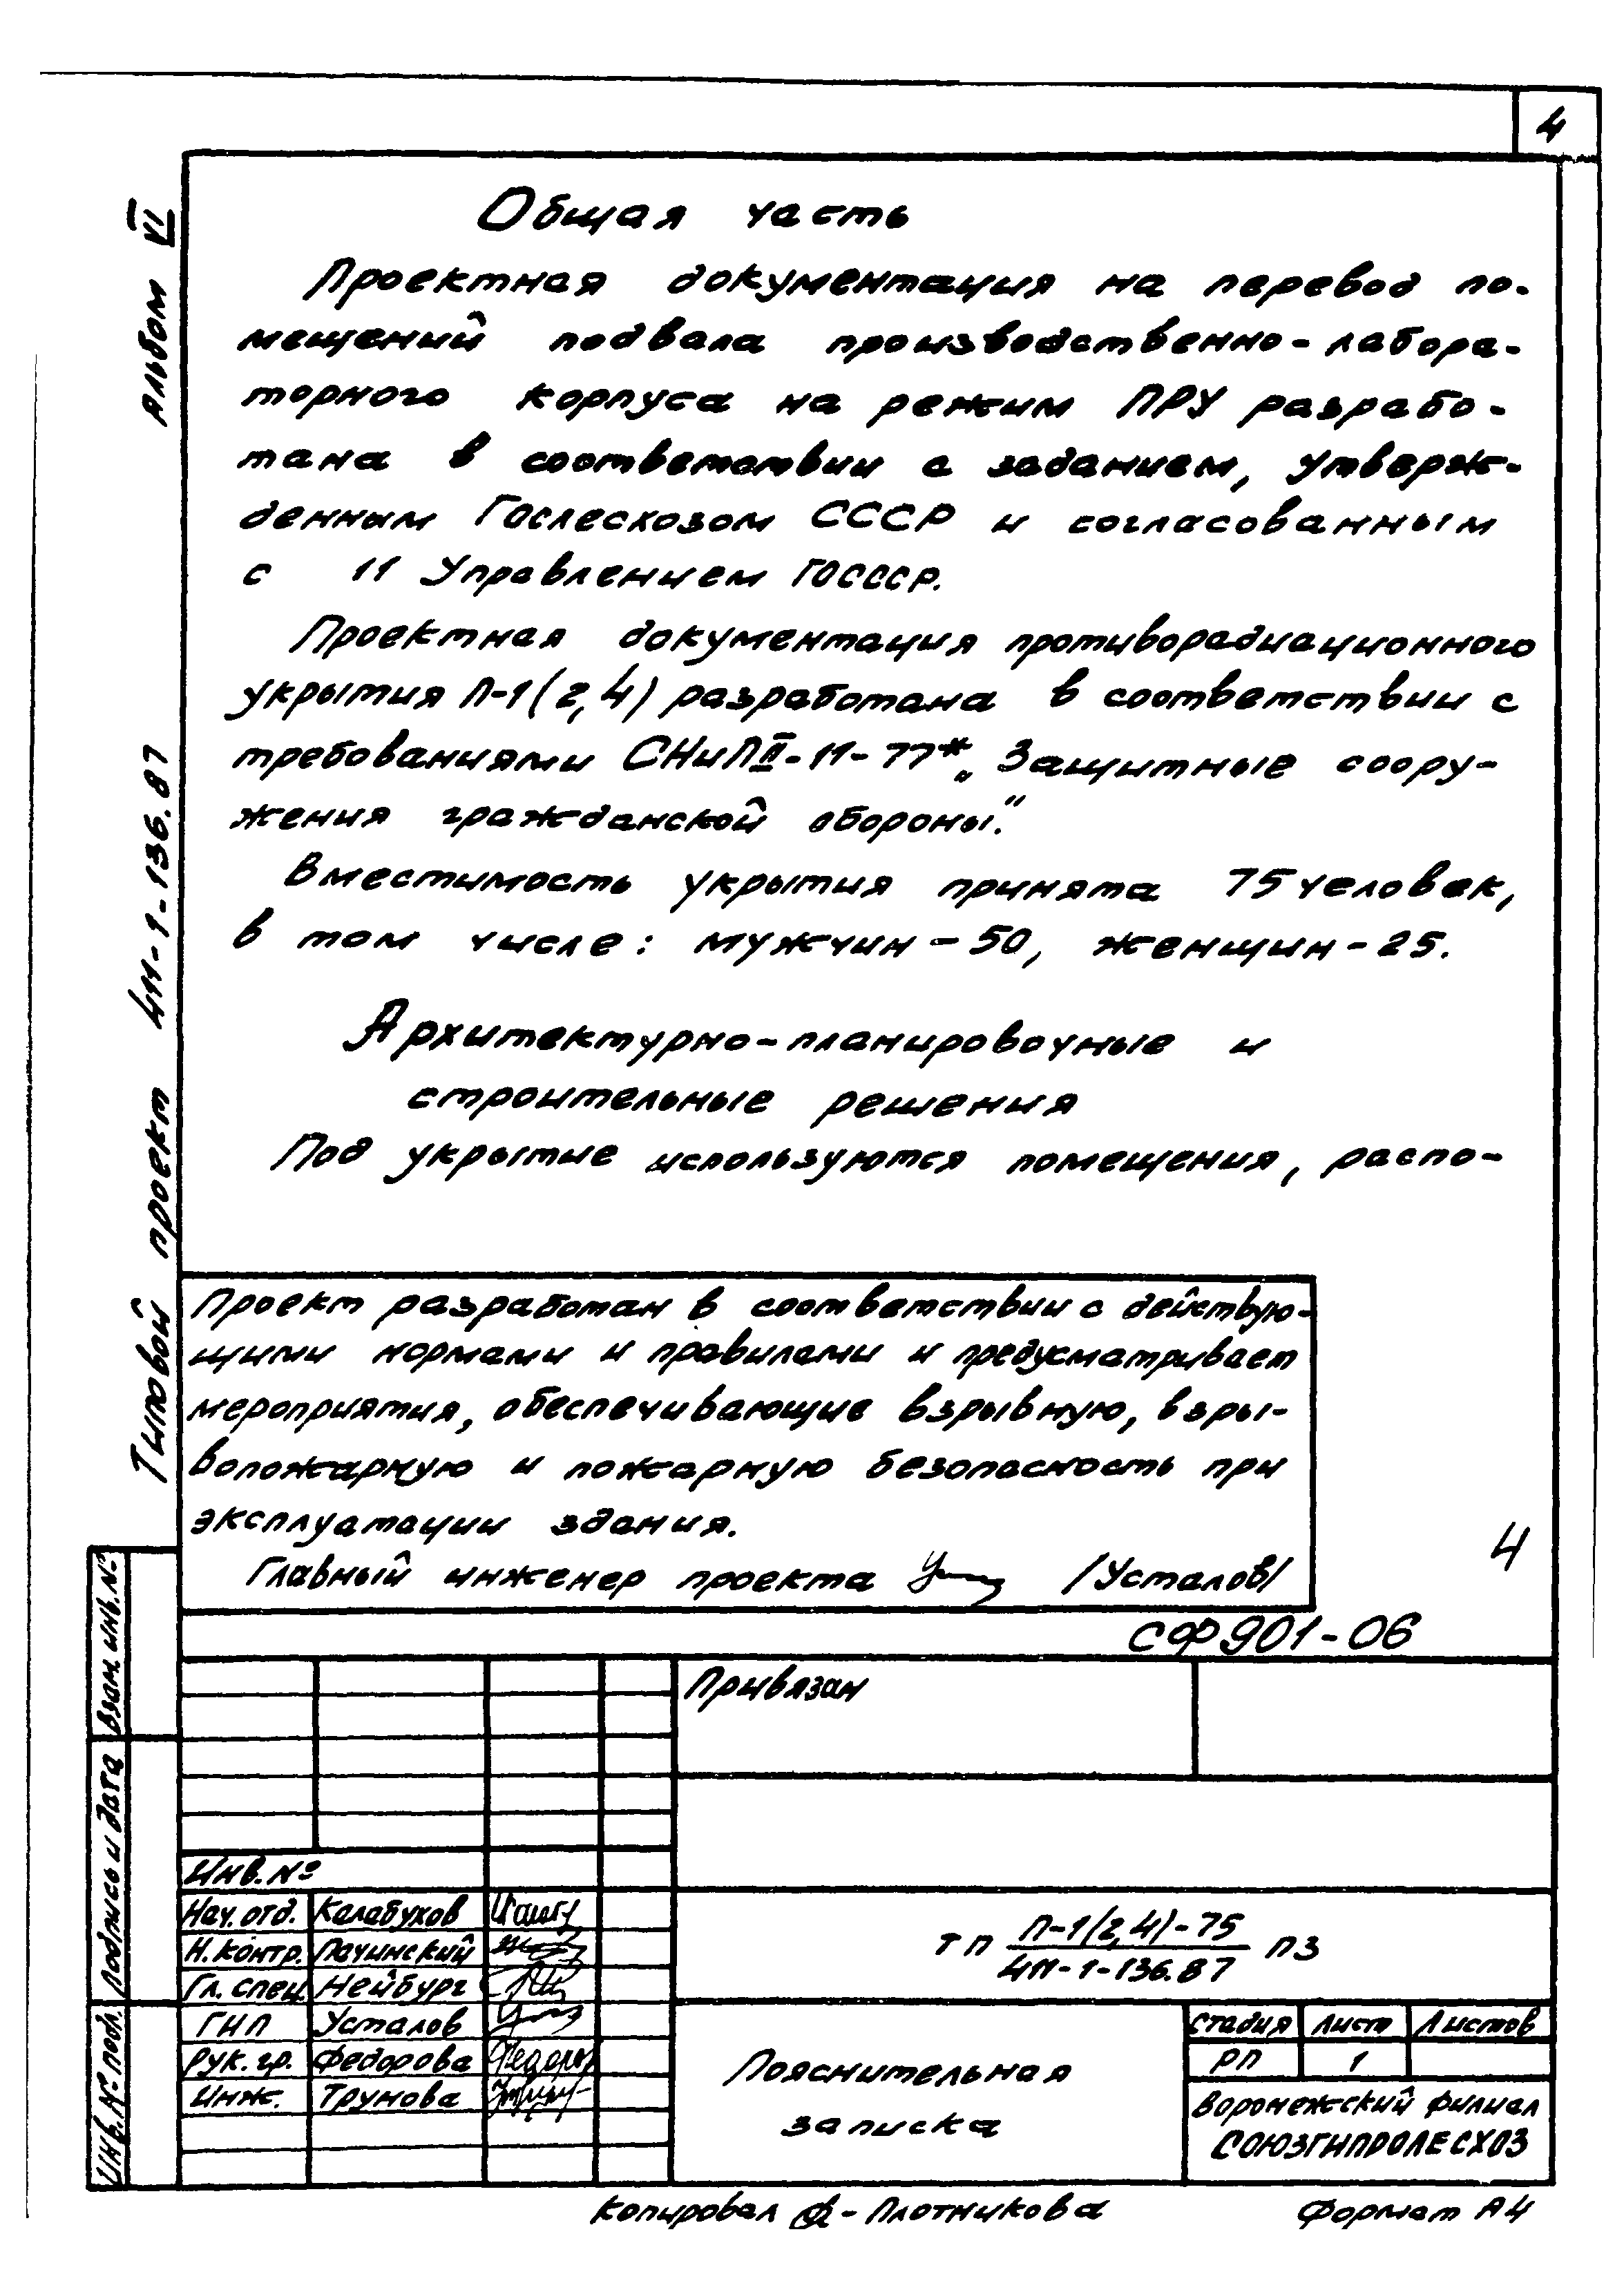 4
Альбом VI
Типовой проект 411-1-136.87
Общая часть
Проектная документация на перевод по-
мещений подвала производственно-лабора-
торного корпуса на режим ПРУ разрабо-
тана в соответствии с заданием, утверж-
денным Гослесхозом СССР и согласованным
с 11 Управлением ГОСССР.
Проектная документация противорадиационного
укрытия П-1(2,4) разработана в соответствии с
требованиями СНиП II-11-77* „Защитные соору-
жения гражданской обороны."
Вместимость укрытия принята 75 человек,
в том числе: мужчин - 50, женщин - 25.
Архитектурно-планировочные и
строительные решения
Под укрытие используются помещения, распо-
Проект разработан в соответствии с действую-
щими нормами и правилами и предусматривает
мероприятия, обеспечивающие взрывную, взры-
вопожарную и пожарную безопасность при
эксплуатации здания.
Главный инженер проекта /Усталов/
4
СФ901-06
Взам. инв. №
Подпись и дата
Инв. № подл.
Привязан
Инв. №
Нач. отд. Калабухов
Н. контр. Пачинский
Гл. спец. Нейбург
ГИП Усталов
Рук. гр. Федорова
Инж. Трунова
ТП П-1(2,4)-75 ПЗ
411-1-136.87
Пояснительная
записка
Стадия Лист Листов
РП 1
Воронежский филиал
СОЮЗГИПРОЛЕСХОЗ
Копировал - Плотникова Формат А4